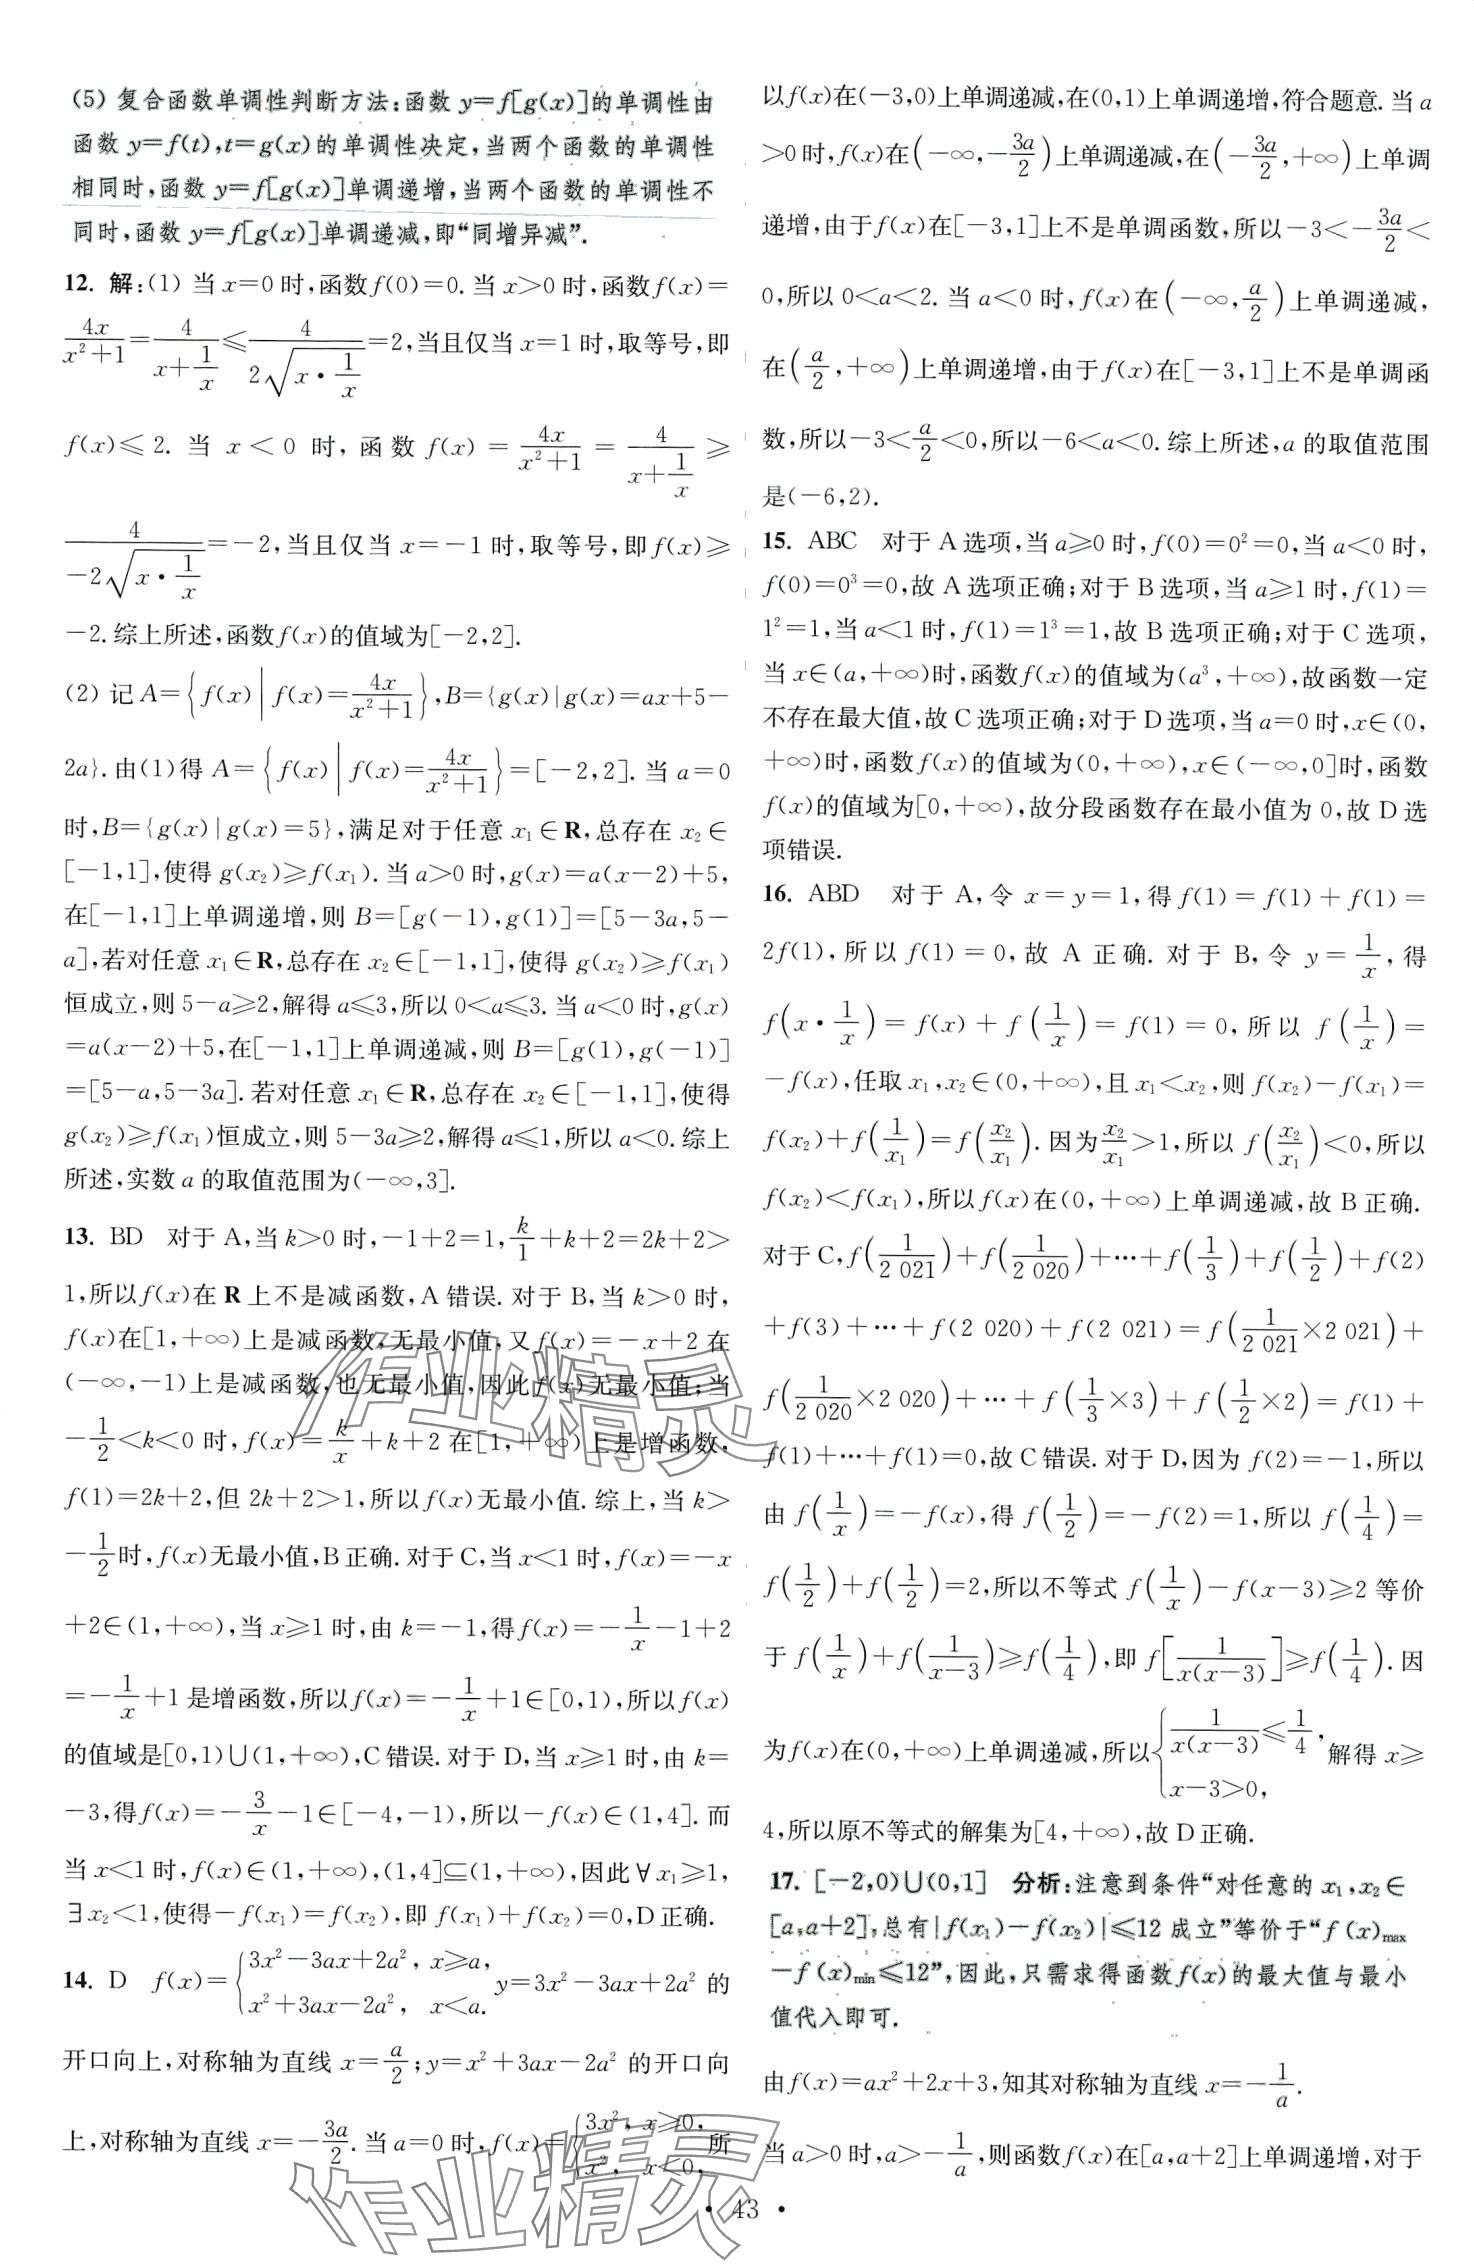 (5) 复合函数单调性判断方法:函数 y=f[g(x)]的单调性由
函数 y=f(t),t=g(x)的单调性决定,当两个函数的单调性
相同时,函数 y=f[g(x)]单调递增,当两个函数的单调性不
同时,函数 y=f[g(x)]单调递减,即“同增异减”.
12. 解:(1) 当 x=0 时,函数 f(0)=0. 当 x>0 时,函数 f(x)=
4x/(x²+1)=4/(x+1/x)≤4/(2√(x·1/x))=2,当且仅当 x=1 时,取等号,即
f(x)≤2. 当 x<0 时,函数 f(x)=4x/(x²+1)=4/(x+1/x)≥
4/(-2√(x·1/x))=-2,当且仅当 x=-1 时,取等号,即 f(x)≥
-2.综上所述,函数 f(x)的值域为[-2,2].
(2) 记 A={f(x)|f(x)=4x/(x²+1)},B={g(x)|g(x)=ax+5-
2a}.由(1)得 A={f(x)|f(x)=4x/(x²+1)}=[-2,2]. 当 a=0
时,B={g(x)|g(x)=5},满足对于任意 x₁∈R,总存在 x₂∈
[-1,1],使得 g(x₂)≥f(x₁).当 a>0 时,g(x)=a(x-2)+5,
在[-1,1]上单调递增,则 B=[g(-1),g(1)]=[5-3a,5-
a],若对任意 x₁∈R,总存在 x₂∈[-1,1],使得 g(x₂)≥f(x₁)
恒成立,则 5-a≥2,解得 a≤3,所以 0<a≤3. 当 a<0 时,g(x)
=a(x-2)+5,在[-1,1]上单调递减,则 B=[g(1),g(-1)]
=[5-a,5-3a].若对任意 x₁∈R,总存在 x₂∈[-1,1],使得
g(x₂)≥f(x₁)恒成立,则 5-3a≥2,解得 a≤1,所以 a<0. 综上
所述,实数 a 的取值范围为(-∞,3].
13. BD 对于 A,当 k>0 时,-1+2=1,k/1+k+2=2k+2>
1,所以 f(x)在 R 上不是减函数,A 错误. 对于 B,当 k>0 时,
f(x)在[1,+∞)上是减函数,无最小值,又 f(x)=-x+2 在
(-∞,-1)上是减函数,也无最小值,因此 f(x)无最小值;当
-1/2<k<0 时,f(x)=k/x+k+2 在[1,+∞)上是增函数,
f(1)=2k+2,但 2k+2>1,所以 f(x)无最小值. 综上,当 k>
-1/2时,f(x)无最小值,B 正确. 对于 C,当 x<1 时,f(x)=-x
+2∈(1,+∞),当 x≥1 时,由 k=-1,得 f(x)=-1/x-1+2
=-1/x+1 是增函数,所以 f(x)=-1/x+1∈[0,1),所以 f(x)
的值域是[0,1)∪(1,+∞),C 错误. 对于 D,当 x≥1 时,由 k=
-3,得 f(x)=-3/x-1∈[-4,-1),所以-f(x)∈(1,4]. 而
当 x<1 时,f(x)∈(1,+∞),(1,4]⊆(1,+∞),因此∀x₁≥1,
∃x₂<1,使得-f(x₁)=f(x₂),即 f(x₁)+f(x₂)=0,D 正确.
14. D f(x)={3x²-3ax+2a², x≥a, x²+3ax-2a², x<a. y=3x²-3ax+2a² 的
开口向上,对称轴为直线 x=a/2;y=x²+3ax-2a² 的开口向
上,对称轴为直线 x=-3a/2. 当 a=0 时,f(x)={3x², x≥0, x², x<0, 所
以 f(x)在(-3,0)上单调递减,在(0,1)上单调递增,符合题意. 当 a
>0 时,f(x)在(-∞,-3a/2)上单调递减,在(-3a/2,+∞)上单调
递增,由于 f(x)在[-3,1]上不是单调函数,所以-3<-3a/2<
0,所以 0<a<2. 当 a<0 时,f(x)在(-∞,a/2)上单调递减,
在(a/2,+∞)上单调递增,由于 f(x)在[-3,1]上不是单调函
数,所以-3<a/2<0,所以-6<a<0. 综上所述,a 的取值范围
是(-6,2).
15. ABC 对于 A 选项,当 a≥0 时,f(0)=0²=0,当 a<0 时,
f(0)=0³=0,故 A 选项正确;对于 B 选项,当 a≥1 时,f(1)=
1²=1,当 a<1 时,f(1)=1³=1,故 B 选项正确;对于 C 选项,
当 x∈(a,+∞)时,函数 f(x)的值域为(a³,+∞),故函数一定
不存在最大值,故 C 选项正确;对于 D 选项,当 a=0 时,x∈(0,
+∞)时,函数 f(x)的值域为(0,+∞),x∈(-∞,0]时,函数
f(x)的值域为[0,+∞),故分段函数存在最小值为 0,故 D 选
项错误.
16. ABD 对于 A,令 x=y=1,得 f(1)=f(1)+f(1)=
2f(1),所以 f(1)=0,故 A 正确. 对于 B,令 y=1/x,得
f(x·1/x)=f(x)+f(1/x)=f(1)=0,所以 f(1/x)=
-f(x),任取 x₁,x₂∈(0,+∞),且 x₁<x₂,则 f(x₂)-f(x₁)=
f(x₂)+f(1/x₁)=f(x₂/x₁). 因为x₂/x₁>1,所以 f(x₂/x₁)<0,所以
f(x₂)<f(x₁),所以 f(x)在(0,+∞)上单调递减,故 B 正确.
对于 C,f(1/2 021)+f(1/2 020)+⋯+f(1/3)+f(1/2)+f(2)
+f(3)+⋯+f(2 020)+f(2 021)=f(1/2 021×2 021)+
f(1/2 020×2 020)+⋯+f(1/3×3)+f(1/2×2)=f(1)+
f(1)+⋯+f(1)=0,故 C 错误. 对于 D,因为 f(2)=-1,所以
由 f(1/x)=-f(x),得 f(1/2)=-f(2)=1,所以 f(1/4)=
f(1/2)+f(1/2)=2,所以不等式 f(1/x)-f(x-3)≥2 等价
于 f(1/x)+f(1/(x-3))≥f(1/4),即 f[1/(x(x-3))]≥f(1/4). 因
为 f(x)在(0,+∞)上单调递减,所以{1/(x(x-3))≤1/4, x-3>0, 解得 x≥
4,所以原不等式的解集为[4,+∞),故 D 正确.
17. [-2,0)∪(0,1] 分析:注意到条件“对任意的 x₁,x₂∈
[a,a+2],总有|f(x₁)-f(x₂)|≤12 成立”等价于“f(x)max
-f(x)min≤12”,因此,只需求得函数 f(x)的最大值与最小
值代入即可.
由 f(x)=ax²+2x+3,知其对称轴为直线 x=-1/a.
当 a>0 时,a>-1/a,则函数 f(x)在[a,a+2]上单调递增,对于
• 43 •
作业精灵
作业精灵